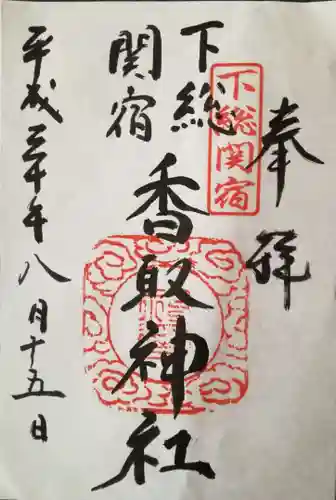 奉拝
下総関宿
下総
関宿
香取神社
平成三十年八月十五日